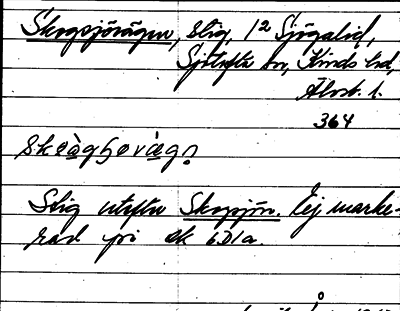 Skogsjövägen, stig, 12 Sjögalid,
Sjötofta sn, Kinds hd,
Älvsb. l.
364
Stig utefter Skogsjön. Ej marke-
rad på ek 6D1a.